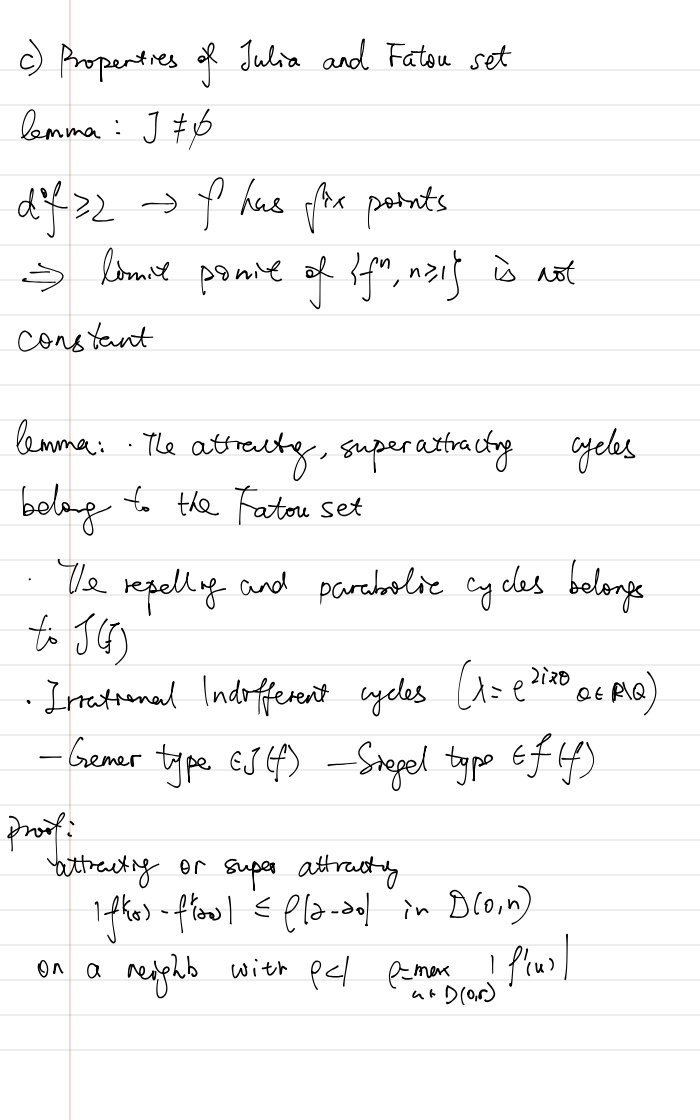 c) Properties of Julia and Fatou set
lemma: J ≠ ∅
d°f ≥ 2 → f has fix points
⇒ limit point of {fⁿ, n≥1} is not
constant
lemma: · The attracting, superattracting cycles
belong to the Fatou set
· The repelling and parabolic cycles belongs
to J(f)
· Irrational Indifferent cycles (λ = e^{2iπθ} θ∈ℝ\ℚ)
– Cremer type ∈ J(f) – Siegel type ∈ F(f)
Proof:
attracting or super attracting
≤ ρ|z-z₀| in D(0,r)
on a neighb with ρ<1 ρ=max_{u∈D(0,r)} |f'(u)|